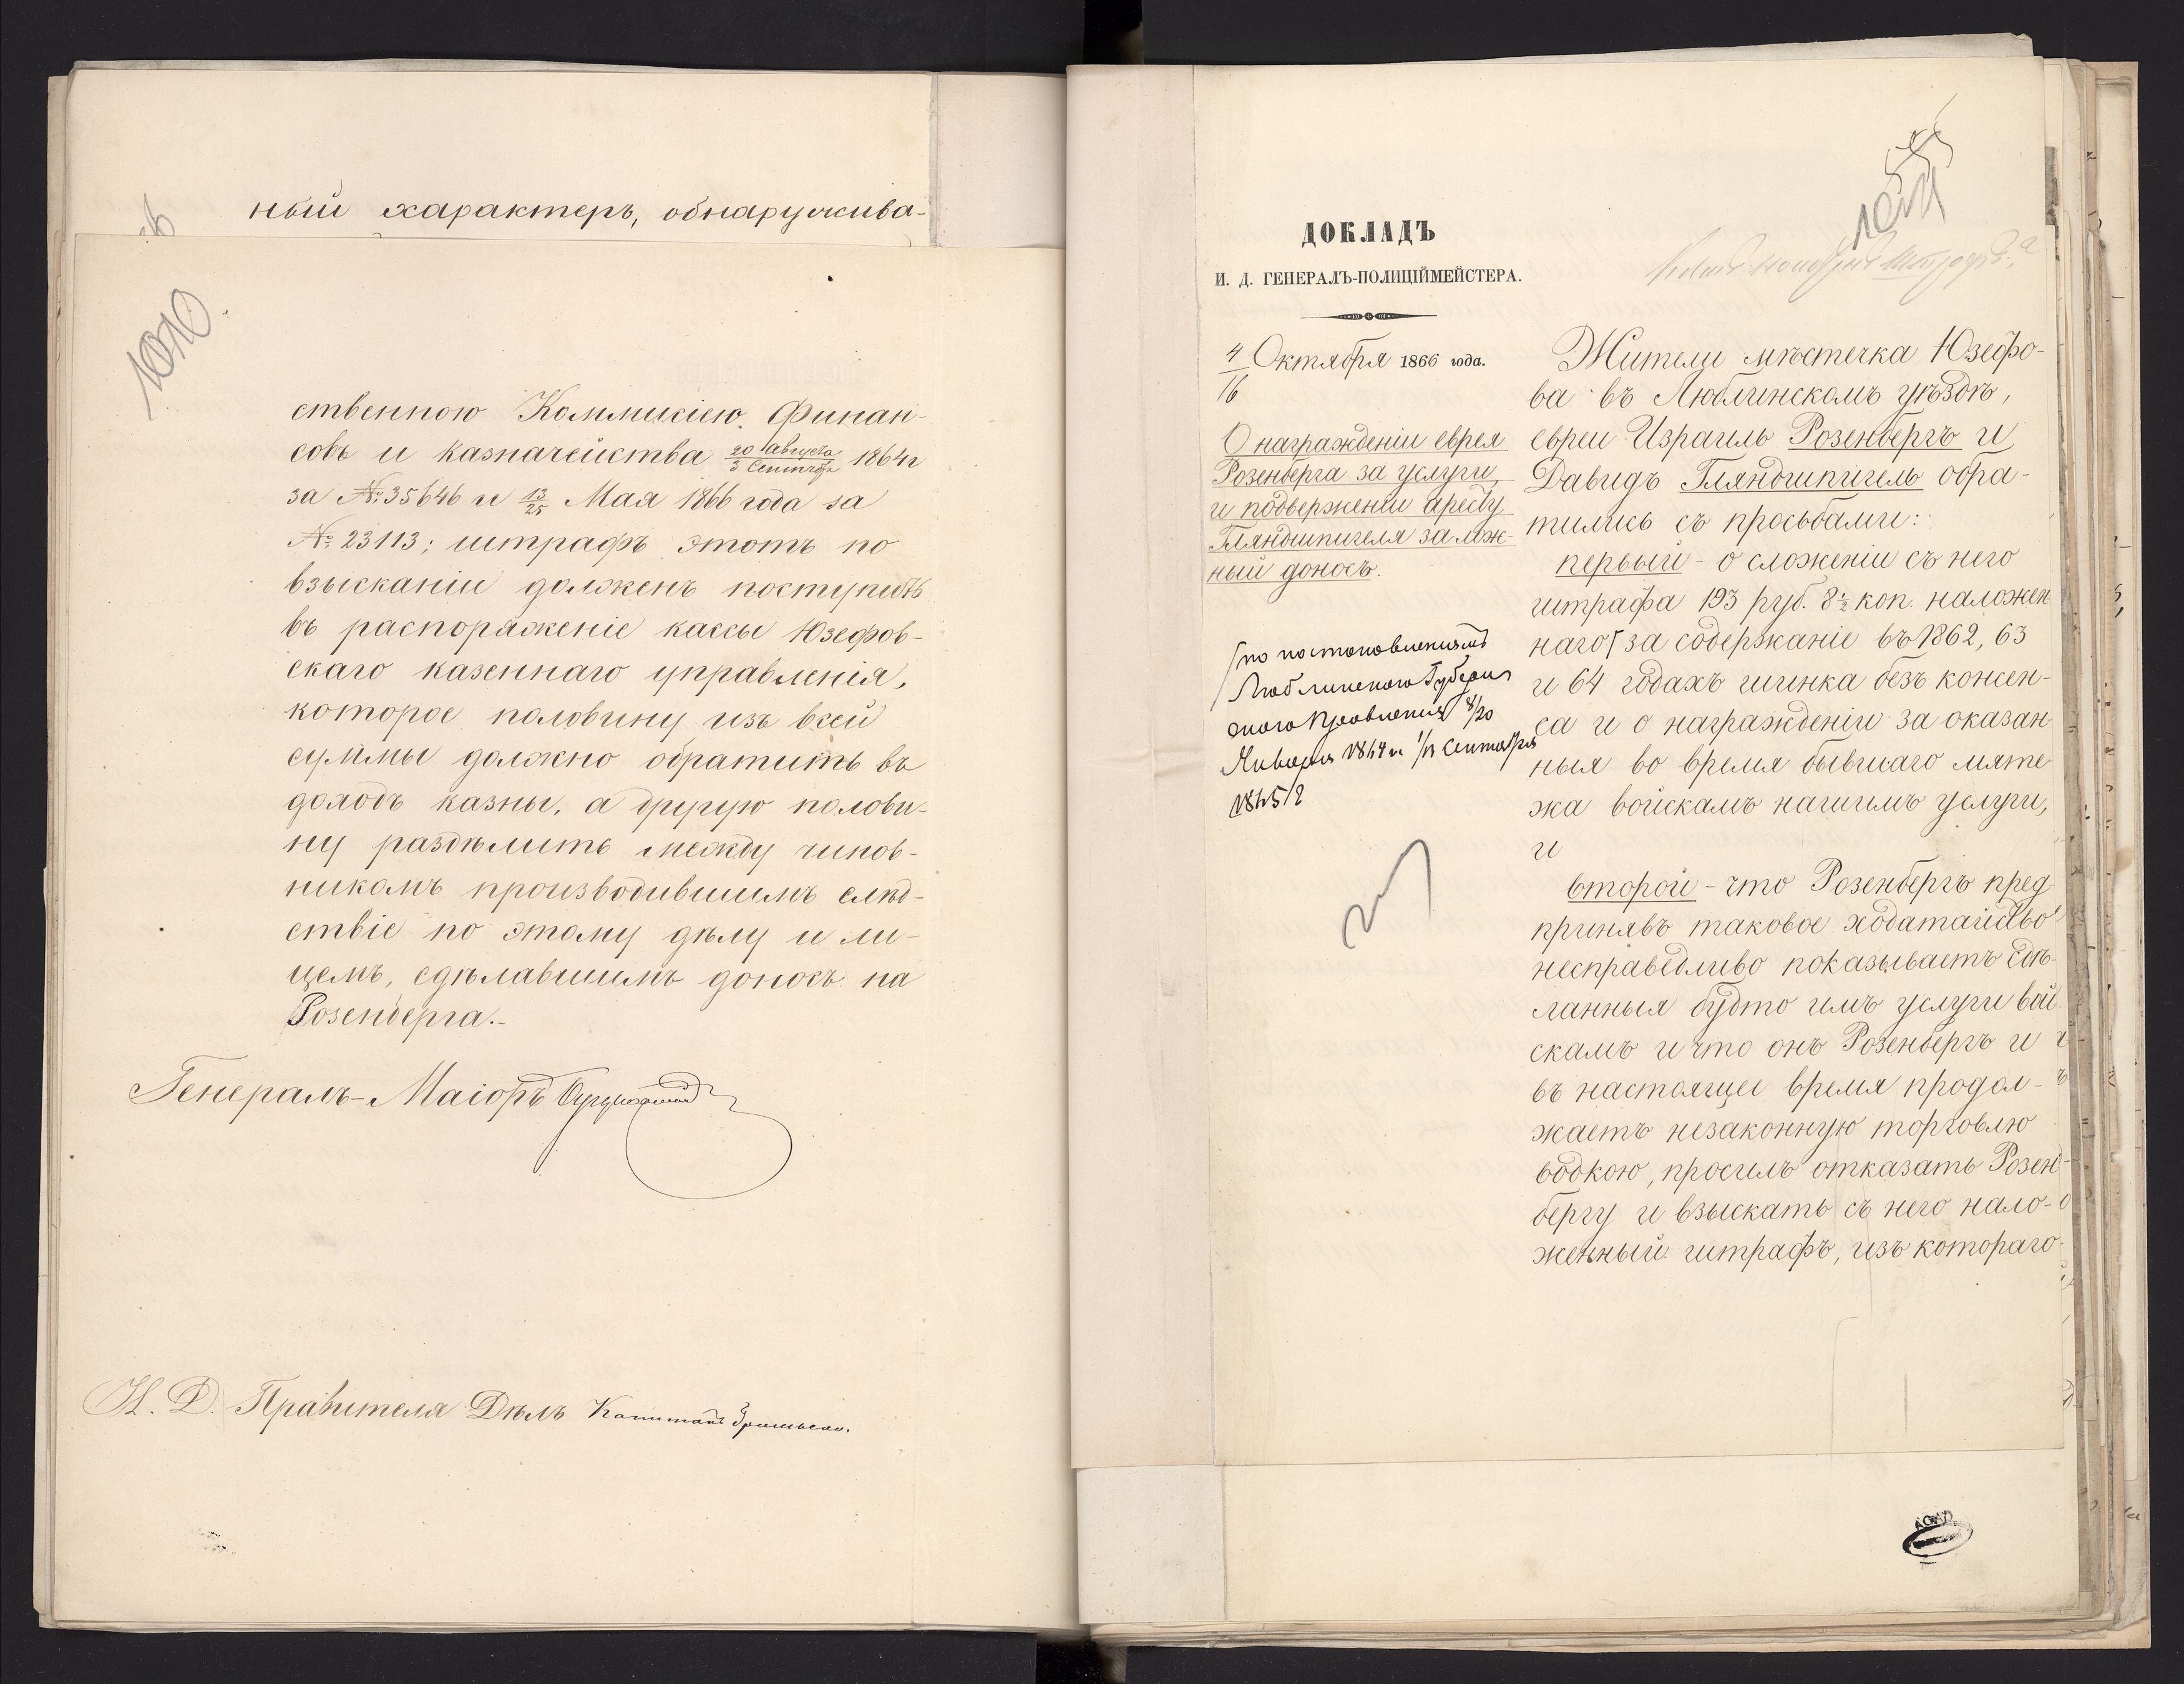 ный характеръ, обнаружива-
1010
ственною Коммисіею Финан-
совъ и казначейства 20 Августа/3 Сентября 1864 г
за №: 35646 и 13/25 Мая 1866 года за
№: 23113; штрафъ этотъ по
взысканіи долженъ поступить
въ распоряженіе кассы Юзефов-
скаго казеннаго управленія,
которое половину изъ всей
суммы должно обратить въ
доходъ казны, а другую полови-
ну раздѣлить между чинов-
никомъ производившимъ слѣд-
ствіе по этому дѣлу и ли-
цемъ, сдѣлавшимъ доносъ на
Розенберга.-
Генералъ-Маіоръ
И. Д. Правителя Дѣлъ Капитанъ
ДОКЛАДЪ
И. Д. ГЕНЕРАЛЪ-ПОЛИЦІЙМЕЙСТЕРА.
4/16 Октября 1866 года.
О награжденіи еврея
Розенберга за услуги,
и подверженіи аресту
Гляндшпигеля за лож-
ный доносъ.
по постановленіямъ
Люблинскаго Губерн
скаго Правленія 8/20
Января 1864 и 1/13 Сентября
1865 г
Жители мѣстечка Юзефо-
ва въ Люблинскомъ уѣздѣ,
евреи Израиль Розенбергъ и
Давидъ Гляндшпигель обра-
тились съ просьбами:
первый - о сложеніи съ него
штрафа 193 руб. 8 1/2 коп. наложен
наго за содержаніе въ 1862, 63
и 64 годахъ шинка безъ консен-
са и о награжденіи за оказан
ныя во время бывшаго мяте-
жа войскамъ нашимъ услуги,
и
второй - что Розенбергъ пред
принявъ таковое ходатайство
несправедливо показываетъ сдѣ-
ланныя будто имъ услуги вой
скамъ и что онъ Розенбергъ и
въ настоящее время продол-
жаетъ незаконную торговлю
водкою, просилъ отказать Розен-
бергу и взыскать съ него нало-
женный штрафъ, изъ котораго
AGAD